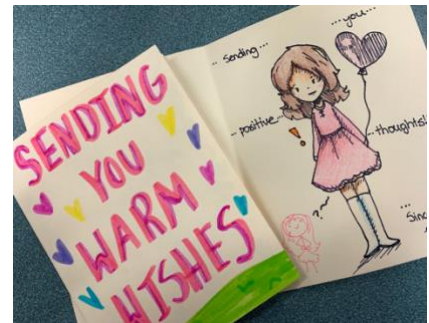 SENDING
YOU
WARM
WISHES
...you...
.. sending...
.. positive..
..thoughts!
...
Since